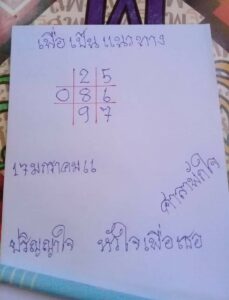 เพื่อเป็นแนวทาง
2 5
0 8 6
9 7
17 มกราคม 66
ปริญญาใจ หัวใจเพื่อเธอ